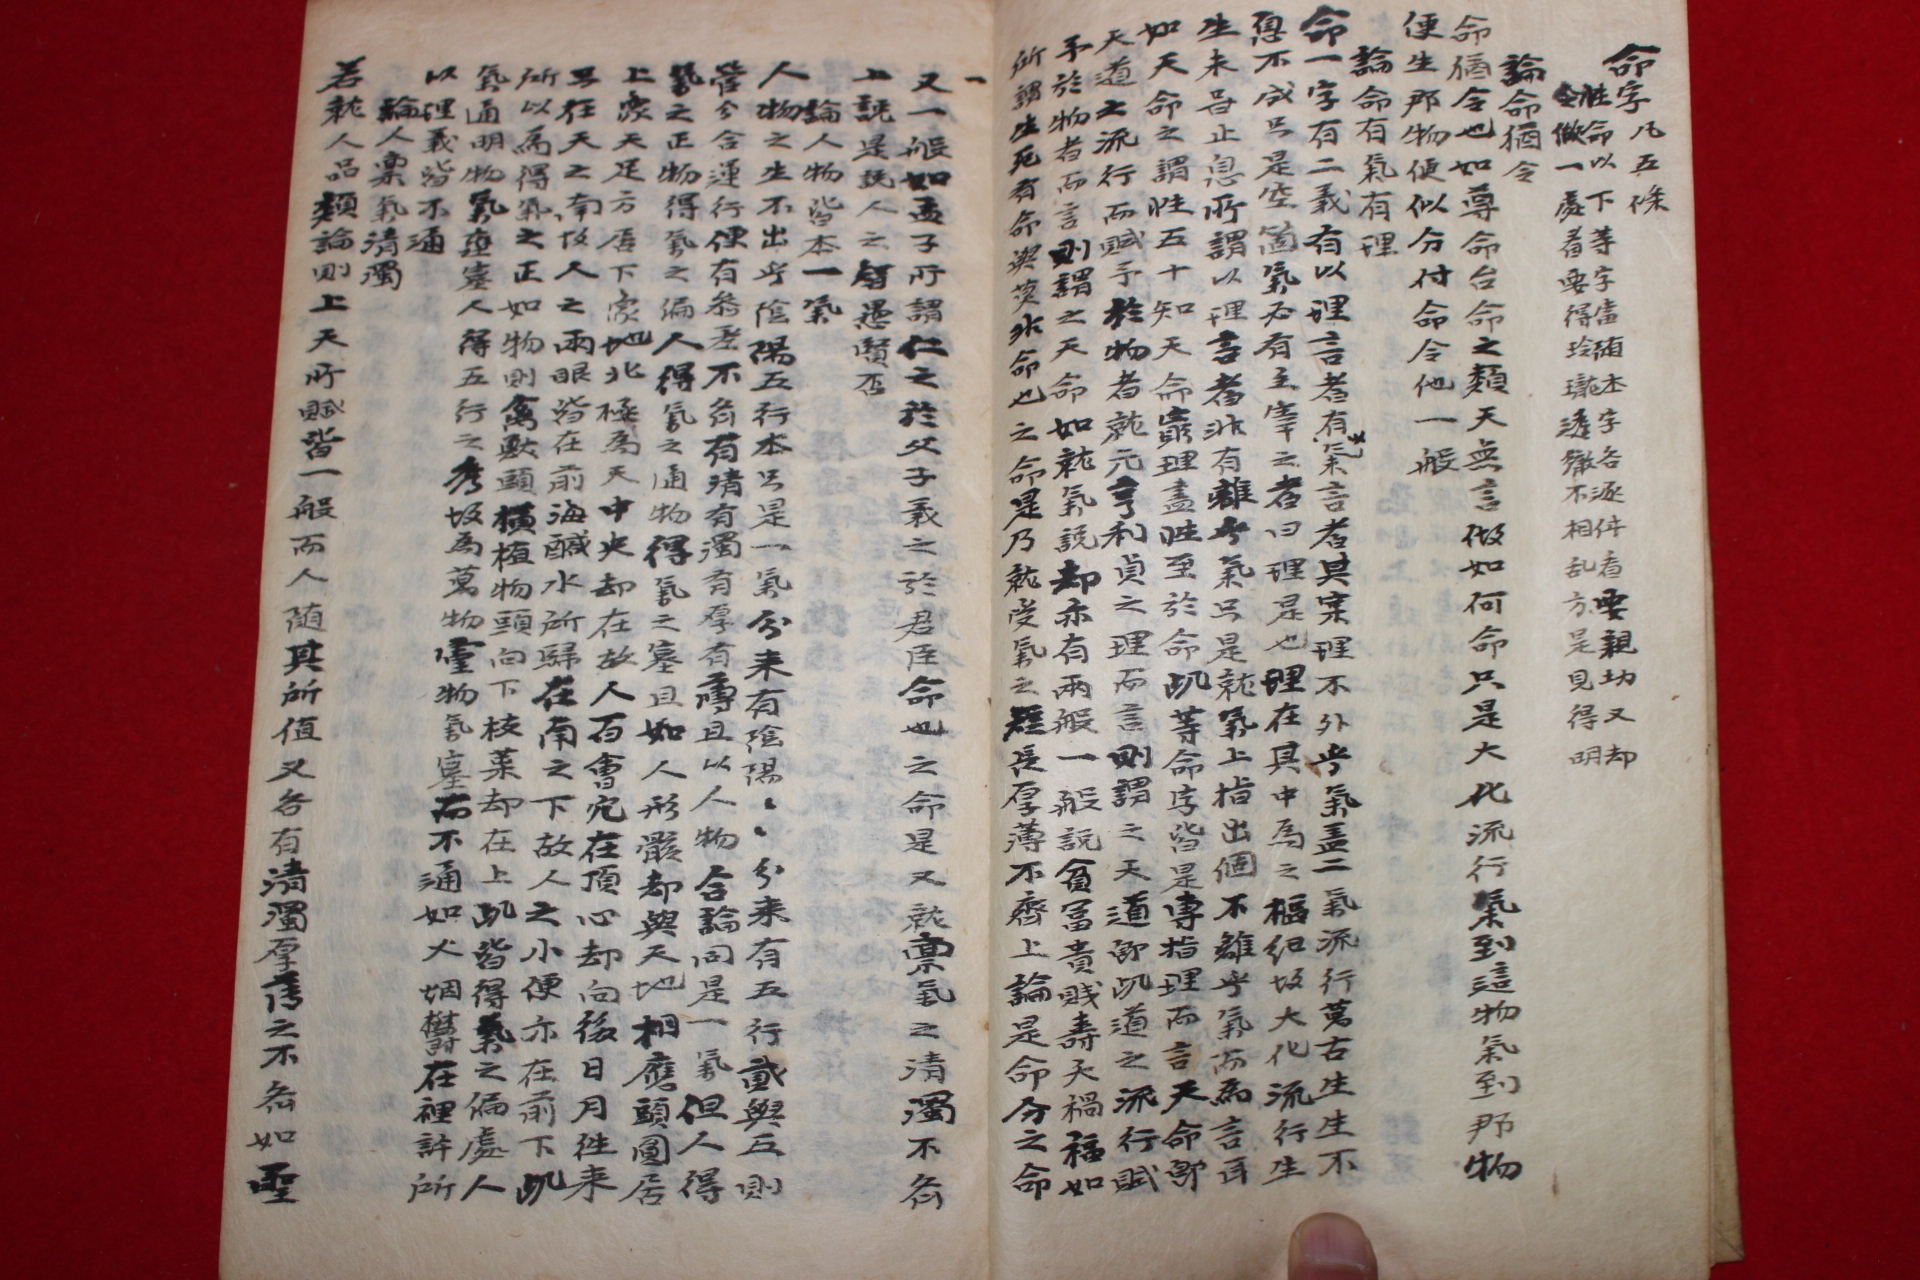 命字凡五條
性命以下等字當隨本字各逐件看要親切又却
令做一處看要得玲瓏透徹不相乱方是見得明
論命猶令
命猶令也如尊命台命之類天無言做如何命只是大化流行氣到這物氣到那物
便生那物便似分付命令他一般
論命有氣有理
命一字有二義有以理言者有以氣言者其实理不外乎氣盖二氣流行萬古生生不
息不成只是空箇氣必有主宰之者曰理是也理在其中為之樞紐故大化流行生
生未甞止息所謂以理言者非有離乎氣只是就氣上指出個不離乎氣而為言耳
如天命之謂性五十知天命窮理盡性至於命此等命字皆是專指理而言天命卽
天道之流行而賦予於物者就元亨利貞之理而言則謂之天道卽此道之流行賦
予於物者而言則謂之天命如就氣説却亦有兩般一般説貧冨貴賤壽夭禍福如
所謂生死有命與莫非命也之命是乃就受氣之短長厚薄不齊上論是命分之命
又一般如孟子所謂仁之於父子義之於君臣命也之命是又就稟氣之清濁不齊
上説是説人之智愚賢否
論人物皆本一氣
人物之生不出乎陰陽五行本只是一氣分来有陰陽〻〻分来有五行貳與五則
管分合運行便有參差不齊有清有濁有厚有薄且以人物合論同是一氣但人得
氣之正物得氣之偏人得氣之通物得氣之塞且如人形骸却與天地相應頭圓居
上象天足方居下象地北極為天中央却在故人百會穴在頂心却向後日月徃来
只在天之南故人之兩眼皆在前海鹹水所歸在南之下故人之小便亦在前下此
所以為得氣之正如物則禽獸頭橫植物頭向下枝葉却在上此皆得氣之偏處人
氣通明物氣壅塞人得五行之秀故為萬物靈物氣塞而不通如火烟欝在裡許所
以理義皆不通
論人稟氣清濁
若就人品類論則上天所賦皆一般而人随其所値又各有清濁厚薄之不齊如聖